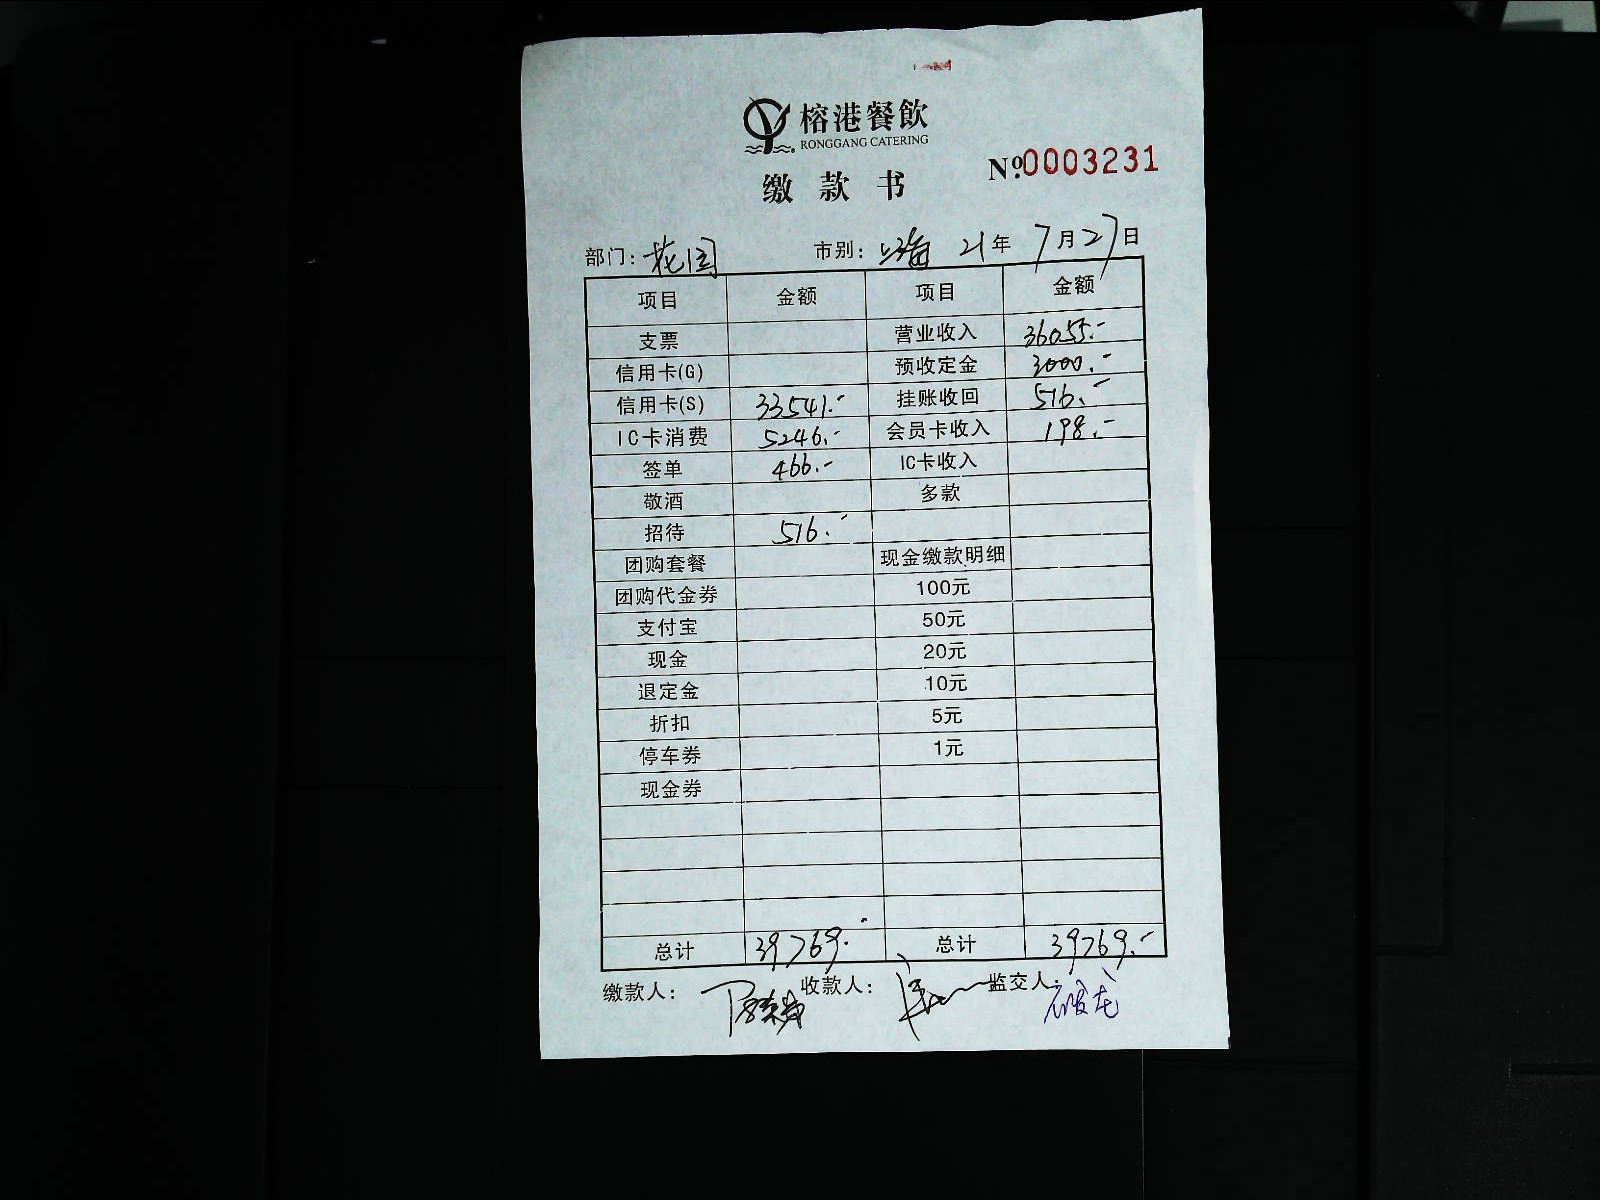 榕港餐飲
RONGGANG CATERING
缴款书
№0003231
部门：花园 市别：上海 21年7月27日
项目 金额 项目 金额
支票 营业收入 36055.-
信用卡(G) 预收定金 3000.-
信用卡(S) 33541.- 挂账收回 516.-
IC卡消费 5246.- 会员卡收入 198.-
签单 466.- IC卡收入
敬酒 多款
招待 516.-
团购套餐 现金缴款明细
团购代金券 100元
支付宝 50元
现金 20元
退定金 10元
折扣 5元
停车券 1元
现金券
总计 39769.- 总计 39769.-
缴款人： 收款人： 监交人：